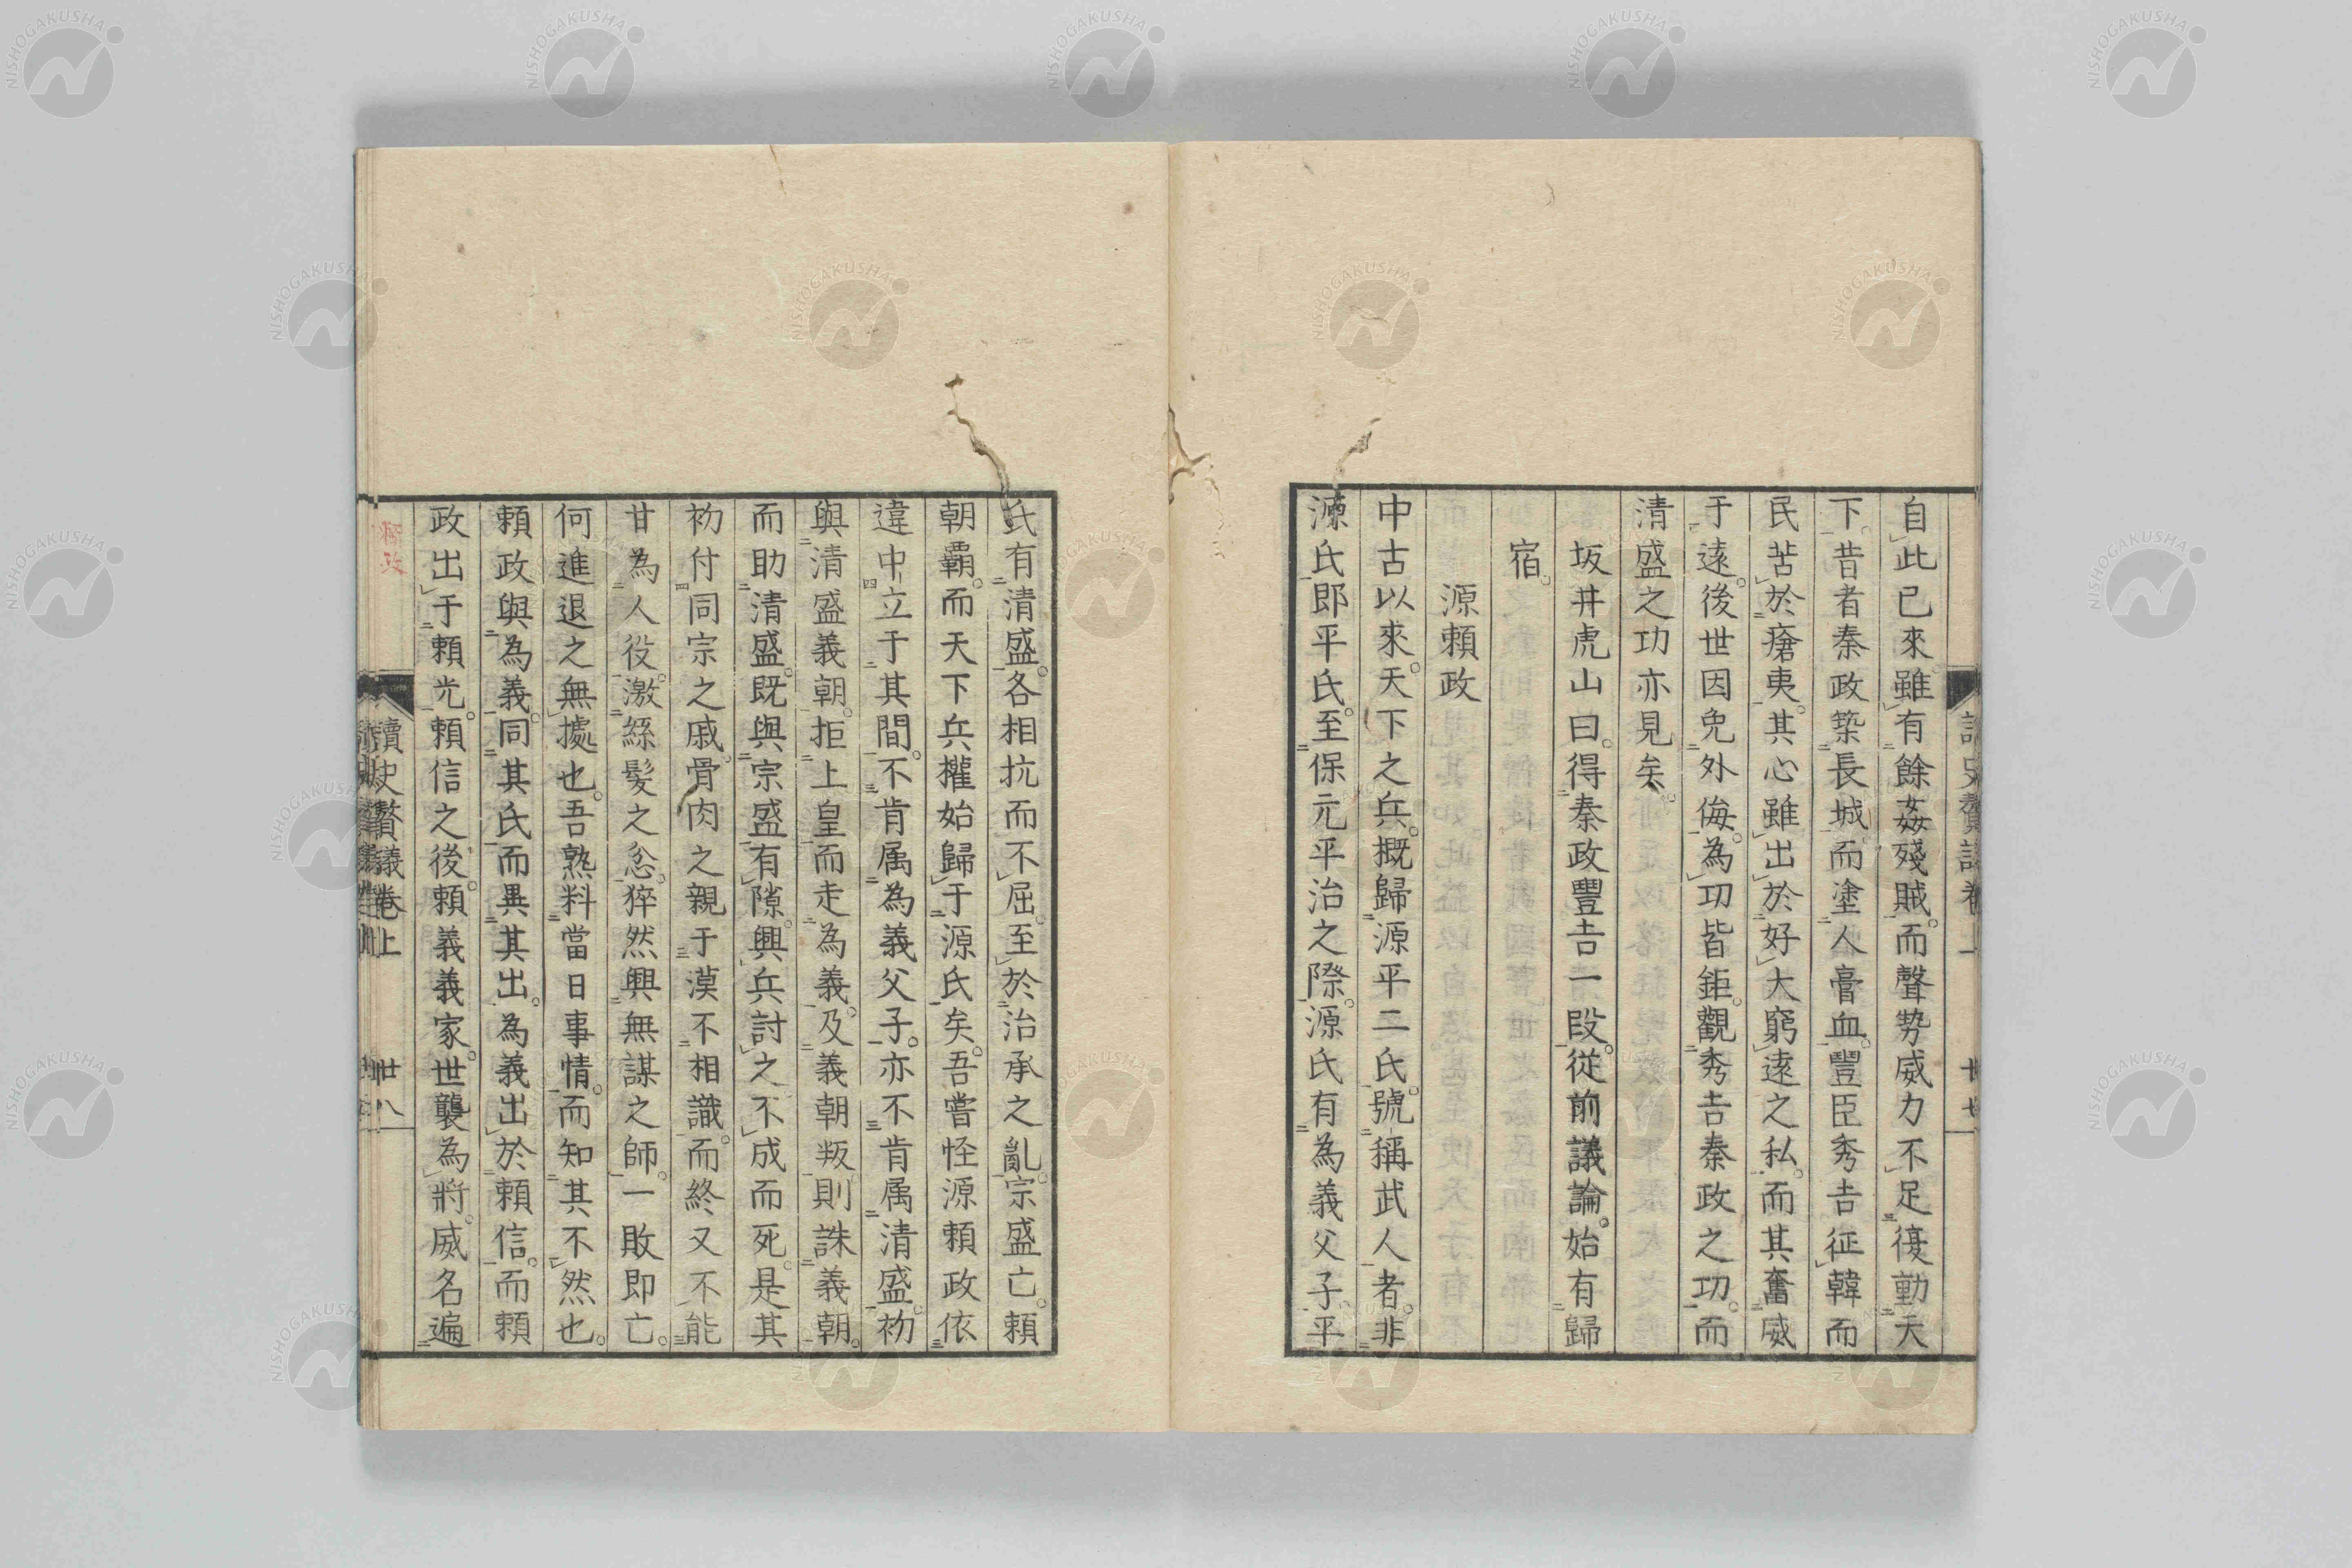 自此已來。雖有餘姦殘賊。而聲勢威力不足復動天
下。昔者秦政築長城。而塗人膏血。豐臣秀吉征韓而
民苦於瘡夷。其心雖出於好大窮遠之私。而其奮威
于遠。後世因免外侮。為功皆鉅。觀秀吉秦政之功。而
清盛之功亦見矣。
坂井虎山曰。得秦政豐吉一段。從前議論。始有歸
宿。
源賴政
中古以來。天下之兵。概歸源平二氏。號稱武人者。非
源氏即平氏。至保元平治之際。源氏有為義父子。平
氏有清盛。各相抗而不屈。至於治承之亂。宗盛亡。賴
朝霸。而天下兵權始歸于源氏矣。吾嘗怪源賴政依
違中立于其間。不肯属為義父子。亦不肯属清盛。初
與清盛義朝。拒上皇而走為義。及義朝叛則誅義朝。
而助清盛。既與宗盛有隙。興兵討之。不成而死。是其
初付同宗之戚。骨肉之親于漠不相識。而終又不能
甘為人役。激絲髮之忿。猝然興無謀之師。一敗即亡。
何進退之無據也。吾熟料當日事情。而知其不然也。
賴政與為義。同其氏而異其出。為義出於賴信。而賴
政出于賴光。賴信之後。賴義義家。世襲為將。威名遍
讀史贅議卷上
廿八
廿七
NISHOGAKUSHA